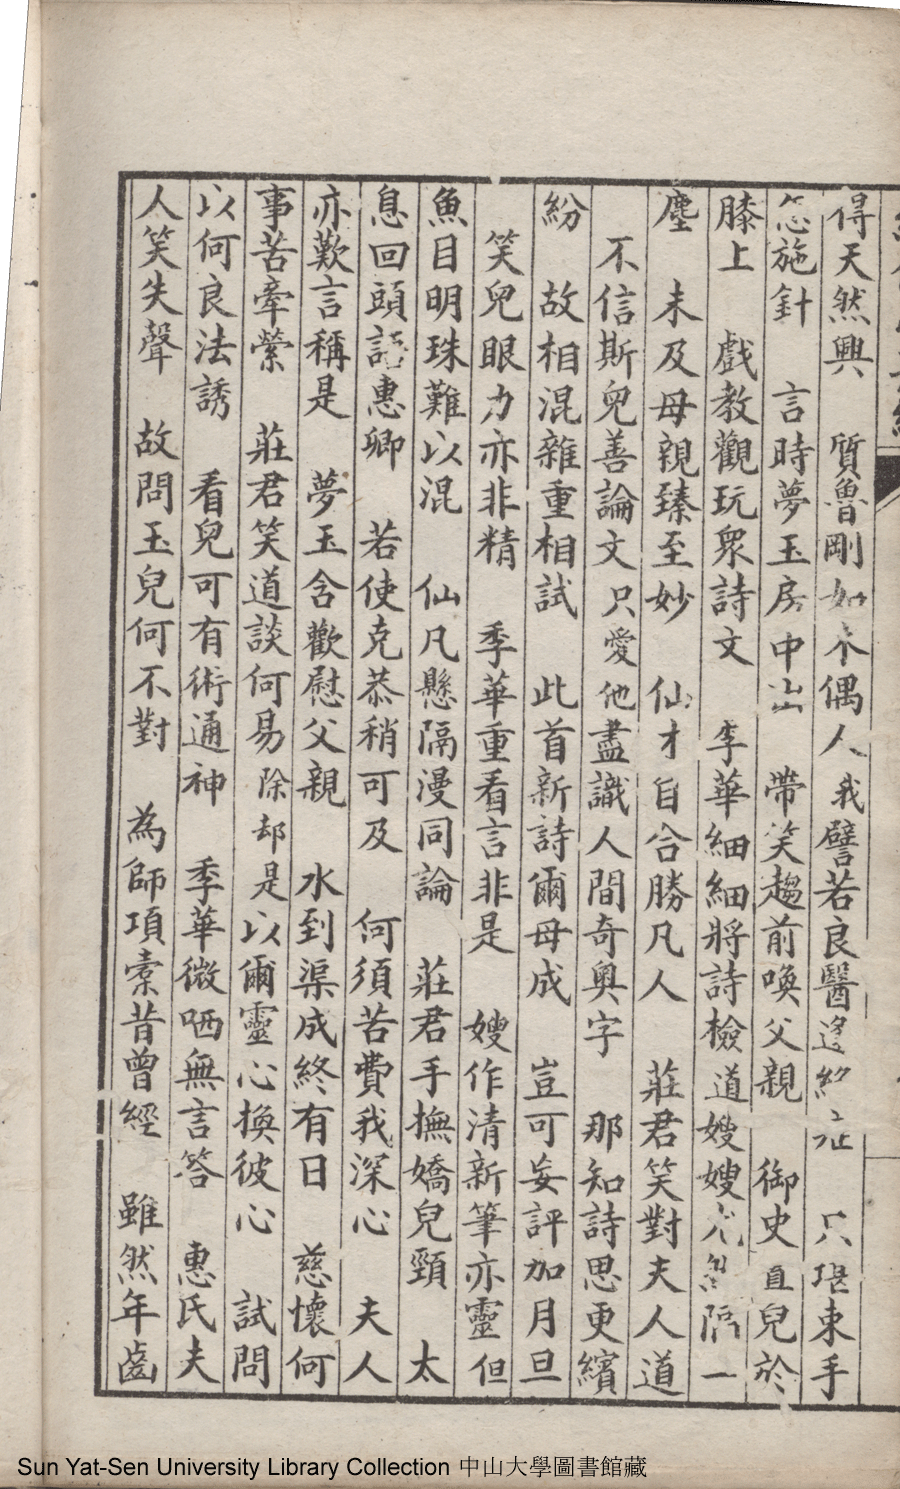 得天然興　質魯剛如木偶人　我譬若良醫逢絕症　只堪束手
怎施針　言時夢玉房中出　帶笑趨前喚父親　御史置兒於
膝上　戲教觀玩眾詩文　季華細細將詩檢　道嫂嫂隔一
塵　未及母親臻至妙　仙才自合勝凡人　莊君笑對夫人道
不信斯兒善論文　只愛他盡識人間奇奧字　那知詩思更繽
紛　故相混雜重相試　此首新詩爾母成　豈可妄評加月旦
笑兒眼力亦非精　季華重看言非是　嫂作清新筆亦靈　但
魚目明珠難以混　仙凡懸隔漫同論　莊君手撫嬌兒頸　太
息回頭語惠卿　若使克恭稍可及　何須苦費我深心　夫人
亦歎言稱是　夢玉含歡慰父親　水到渠成終有日　慈懷何
事苦牽縈　莊君笑道談何易　除却是以爾靈心換彼心　試問
以何良法誘　看兒可有術通神　季華微哂無言答　惠氏夫
人笑失聲　故問玉兒何不對　為師項橐昔曾經　雖然年齒
Sun Yat-Sen University Library Collection 中山大學圖書館藏